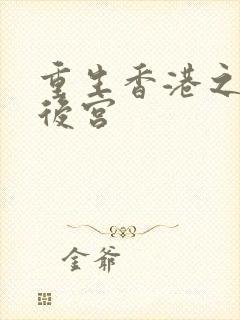 重生香港之
後宮
金爺